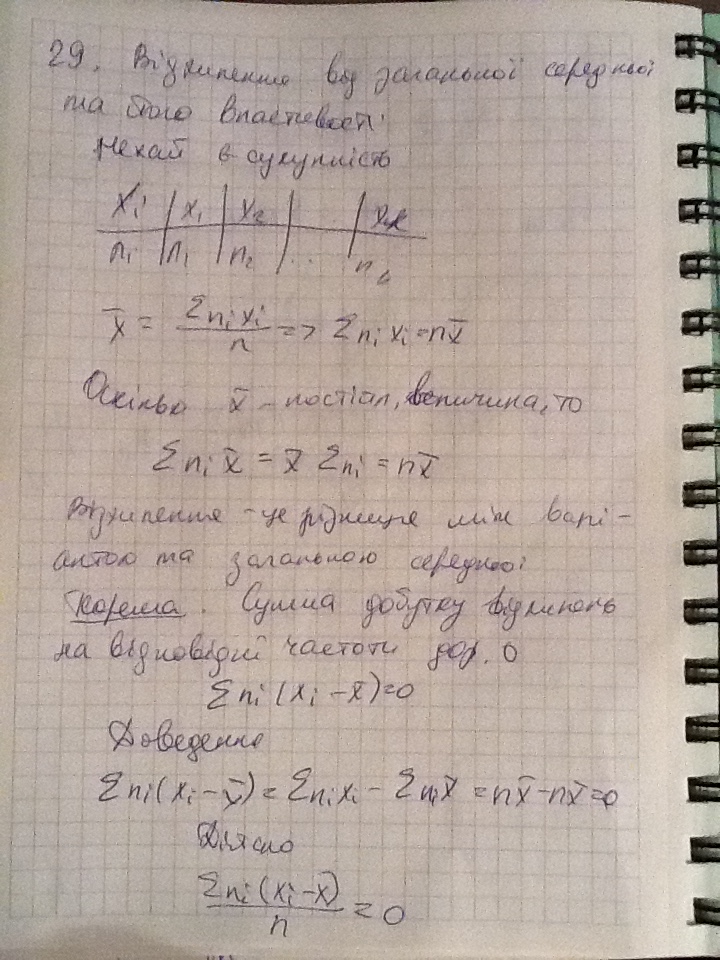 29. Відхилення від загальної середньої
та його властивості.
Нехай в сукупність
xi | x1 | x2 | | xk
ni | n1 | n2 | .. | nk
x̄ = Σ ni xi / n => Σ ni xi = n x̄
Оскільки x̄ - постіян, величина, то
Σ ni x̄ = x̄ Σ ni = n x̄
Відхилення - це різниця між варі-
антою та загальною середньої
Теорема. Сума добутку відхилень
на відповідні частоти рівн. 0
Σ ni (xi - x̄) = 0
Доведення
Σ ni (xi - x̄) = Σ ni xi - Σ ni x̄ = n x̄ - n x̄ = 0
Σ ni (xi - x̄) / n = 0